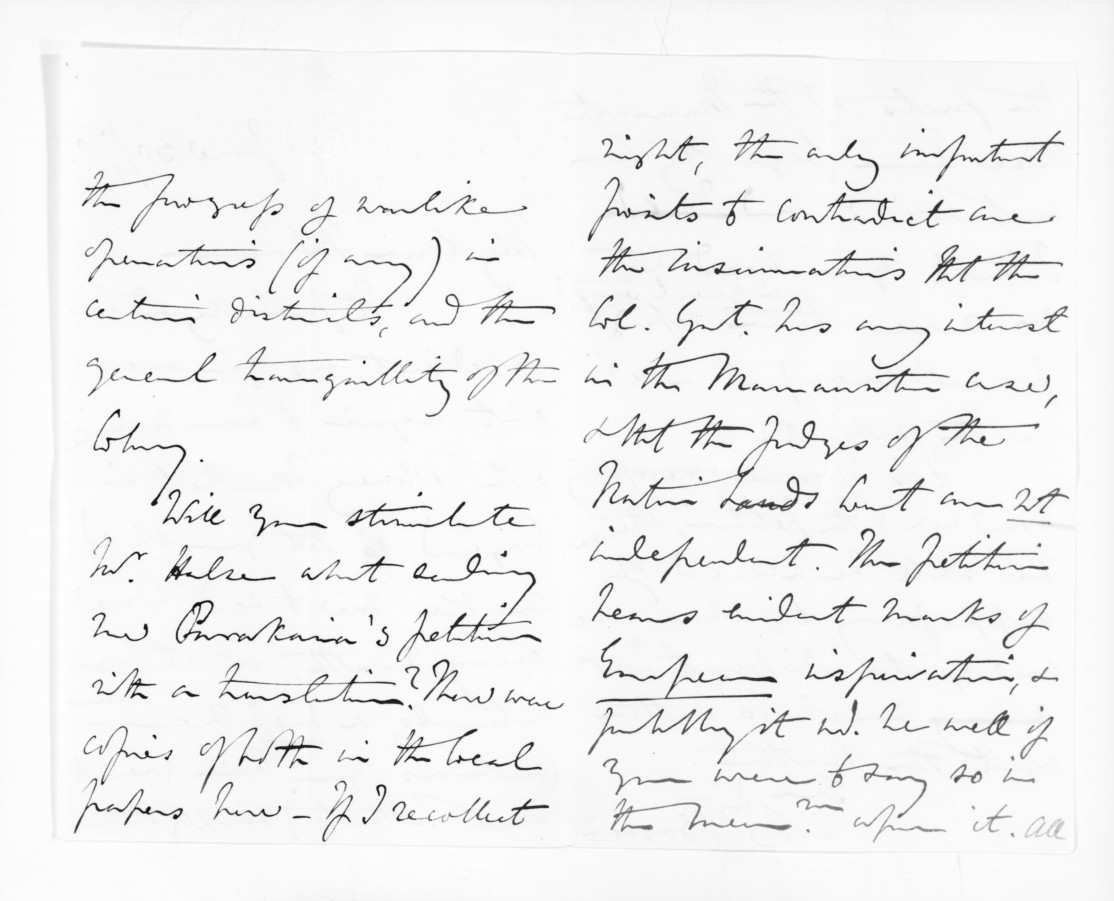 the progress of warlike
operations (if any) in
certain districts, and the
general tranquillity of the
Colony.
Will you stimulate
Mr. Halse about sending
me Parakaia's petition
with a translation? There were
copies of both in the local
papers here - If I recollect
right, the only important
points to contradict are
the insinuations that the
Col. Govt. has any interest
in the Manawatu case,
& that the Judges of the
Native Lands Court are not
independent. The petition
bears evident marks of
European inspiration, &
probably it wd. be well if
you were to say so in
the Mem.m upon it. All